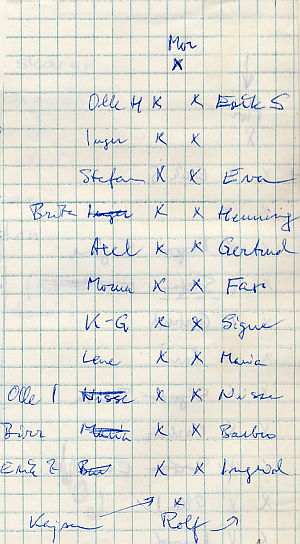 Mor
x
Olle H x x Erik S
Inger x x
Stefan x x Eva
Brita Inger x x Henning
Axel x x Gertrud
Morma x x Far
K-G x x Signe
Lena x x Maria
Olle I Nisse x x Nisse
Birr Maria x x Barbro
Erik Z x x Ingrid
x
Kajsa Rolf